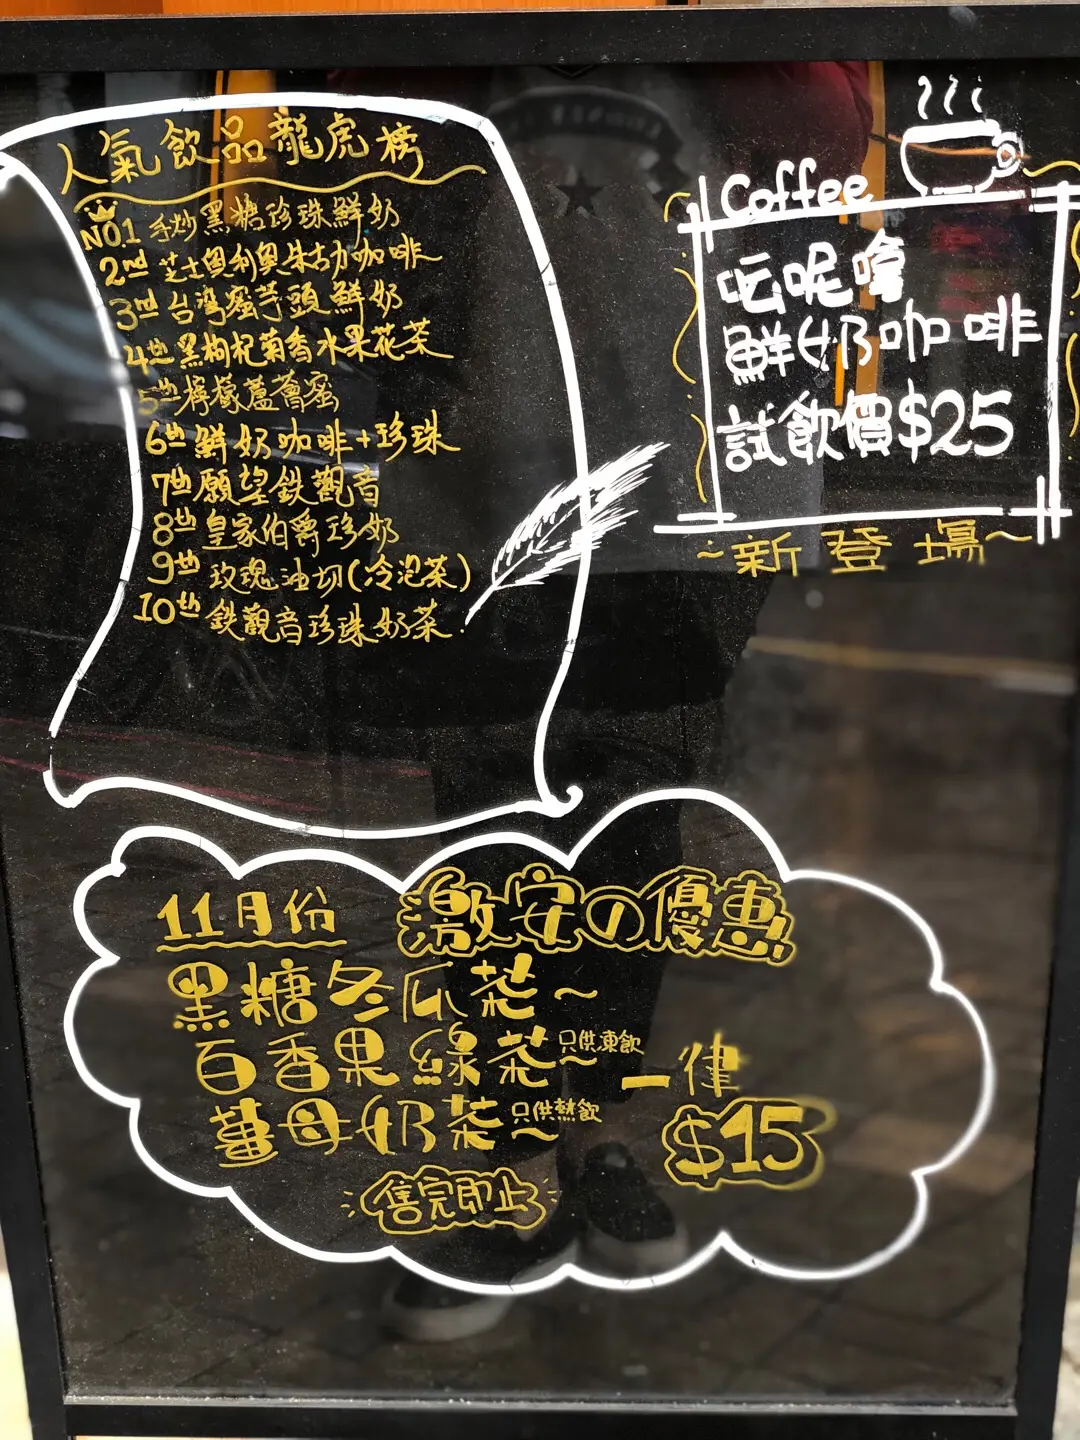 人氣飲品龍虎榜
NO.1 手炒黑糖珍珠鮮奶
2nd 芝士奧利奧朱古力咖啡
3rd 台灣蜜芋頭鮮奶
4th 黑枸杞菊香水果花茶
5th 檸檬蘆薈蜜
6th 鮮奶咖啡+珍珠
7th 願望鉄觀音
8th 皇家伯爵珍奶
9th 玫瑰油切(冷泡茶)
10th 鉄觀音珍珠奶茶.
Coffee
吃呢嗱
鮮奶咖啡
試飲價$25
~新登場~
11月份 激安の優惠
黑糖冬瓜茶~
百香果綠茶~只供凍飲
薑母奶茶~只供熱飲
一律
$15
售完即止